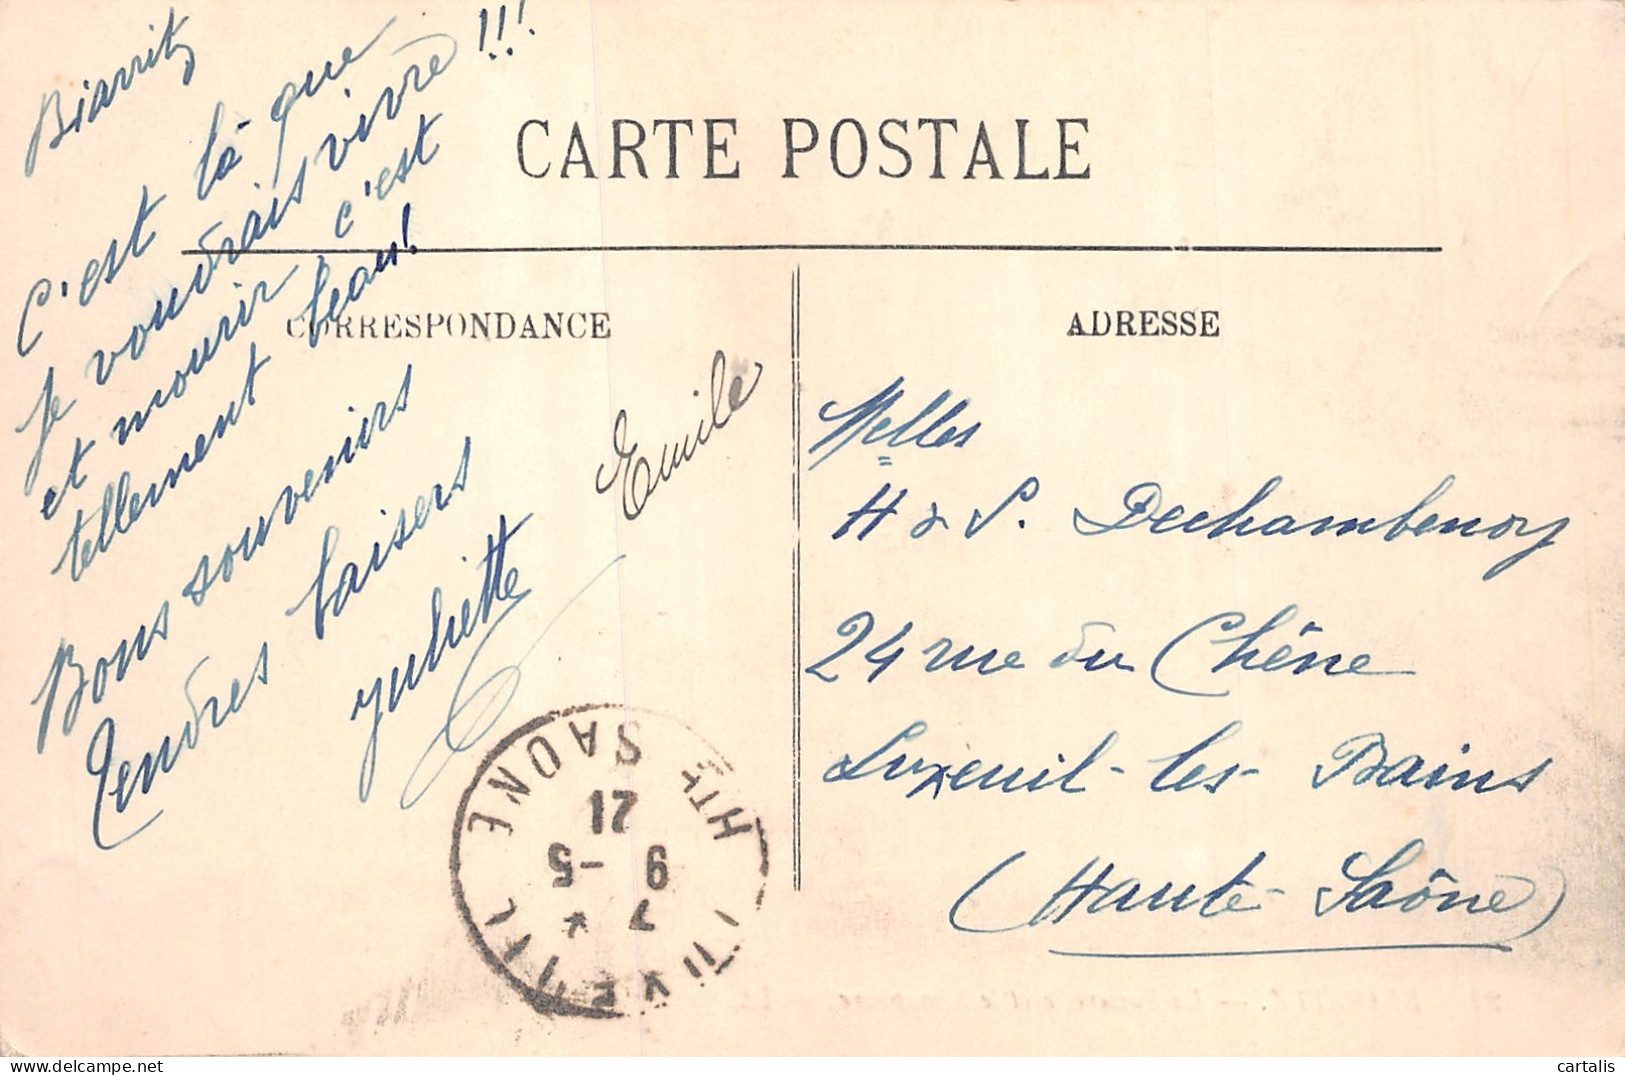 Biarritz
C'est là que
je voudrais vivre !!!
et mourir c'est
tellement beau!
Bons souvenirs
Tendres baisers
Juliette
Emile
CARTE POSTALE
CORRESPONDANCE
ADRESSE
Melles
H & S. Dechambenoy
24 rue du Chêne
Luxeuil-les-Bains
(Haute-Saône)
HTE SAONE
7
9 -5
21
cartalis